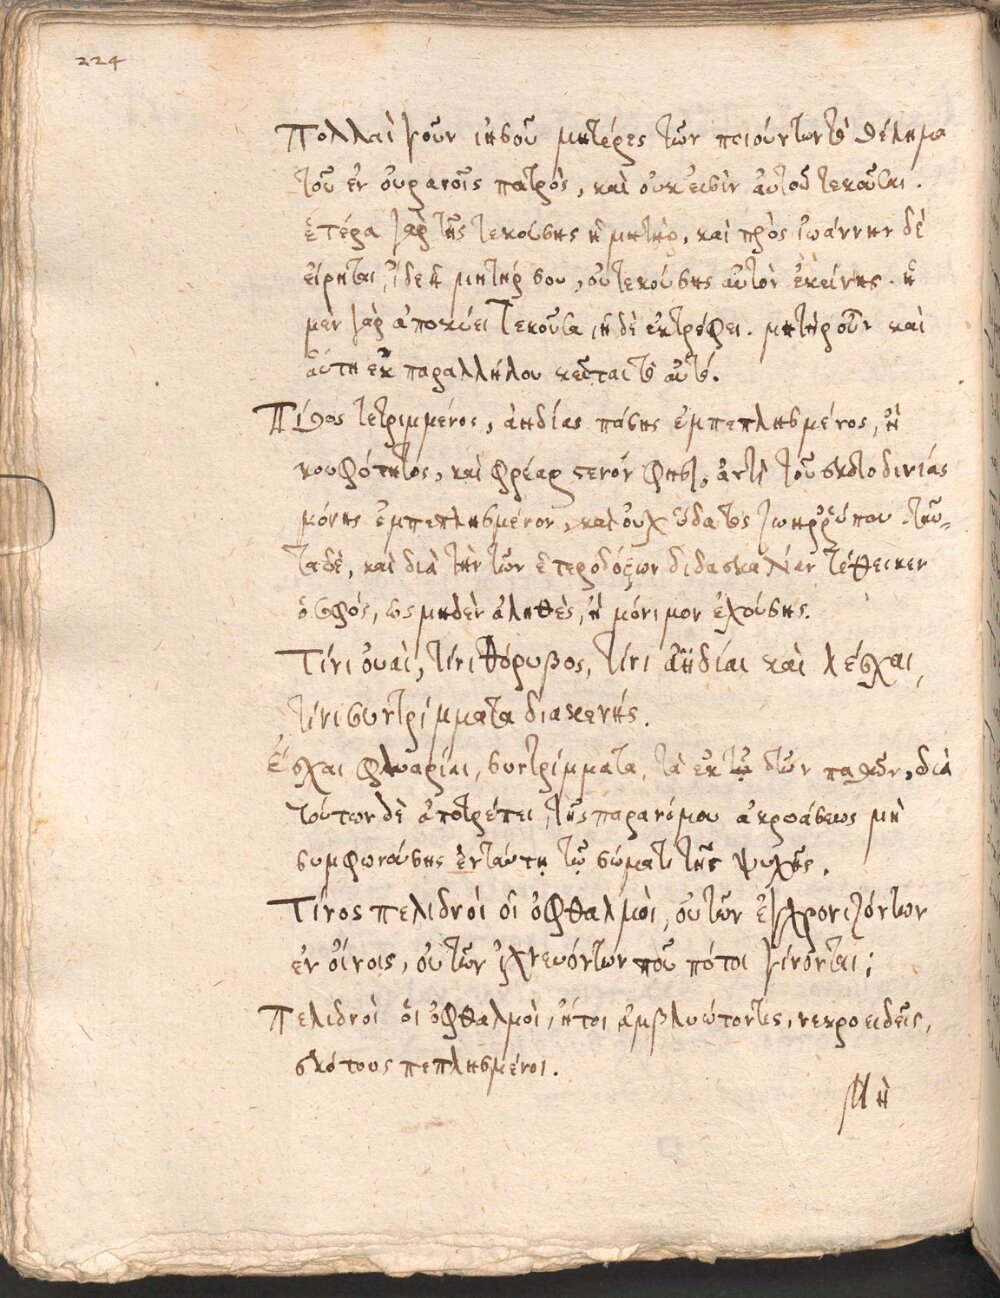 224
Πολλαὶ γοῦν ἰησοῦ μητέρες τῶν ποιούντων τὸ θέλημα
τοῦ ἐν οὐρανοῖς πατρὸς, καὶ οὐκ εἰσὶν αὐτοῦ τεκοῦσαι.
ἑτέρα γὰρ τῆς τεκούσης ἡ μητὴρ, καὶ πρὸς ἰωάννην δὲ
εἴρηται, ἴδε ἡ μητήρ σου, οὐ τεκούσης αὐτὸν ἐκείνης. ἡ
μὲν γὰρ ἀποκύει τεκοῦσα, ἡ δὲ ἐκτρέφει. μητὴρ οὖν καὶ
αὕτη ἐκ παραλλήλου κεῖται τὸ αὐτό.
Πίθος τετριμμένος, ἀηδίας πάσης ἐμπεπλησμένος, ἢ
κουφότητος, καὶ φρέαρ στενόν φησι, ἀντὶ τοῦ σκοτοδινίας
μόνης ἐμπεπλησμένον, καὶ οὐχ ὕδατος ζωηρρύπου. ταῦ-
τα δὲ, καὶ διὰ τὴν τῶν ἑτεροδόξων διδασκαλίαν τέθεικεν
ὁ σοφός, ὡς μηδὲν ἀληθὲς, ἢ μόνιμον ἐχούσης.
Τίνι οὐαὶ, τίνι θόρυβος, τίνι ἀηδίαι καὶ λέσχαι,
τίνι συντρίμματα διακενῆς.
έσχαι φλυαρίαι, συντρίμματα, τὰ ἐκ τῶν παθῶν, διὰ
τούτων δὲ ἀποτρέπει, τῆς παρανόμου ἀκροάσεως μὴ
συμφωνούσης ἐν ταύτῃ τῷ σώματι τῆς ψυχῆς.
Τίνος πελιδνοὶ οἱ ὀφθαλμοὶ, οὐ τῶν ἐγχρονιζόντων
ἐν οἴνοις, οὐ τῶν ἰχνευόντων ποῦ πότοι γίνονται;
Πελιδνοὶ οἱ ὀφθαλμοὶ, ἤτοι ἀμβλυώττοντες, νεκροειδεῖς,
σκότους πεπλησμένοι.
Μὴ